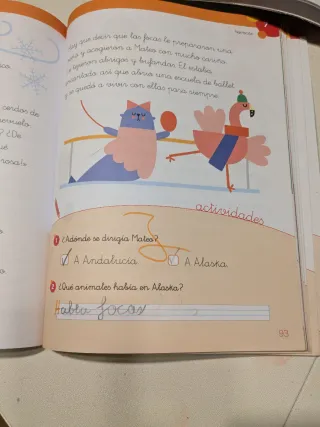 hay que decir que las focas le prepararon una
y acogieron a Mateo con mucho cariño.
Le tejieron abrigos y bufandas. Él estaba
encantado así que abrió una escuela de ballet
y se quedó a vivir con ellas para siempre.
cerdos de
? ¿De
actividades
1 ¿Adónde se dirigía Mateo?
A Andalucía. A Alaska.
2 ¿Qué animales había en Alaska?
Había focas
93